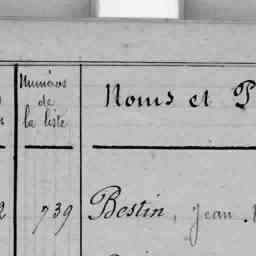 Numéros
de
la liste
Noms et P
2 739 Bestin, Jean